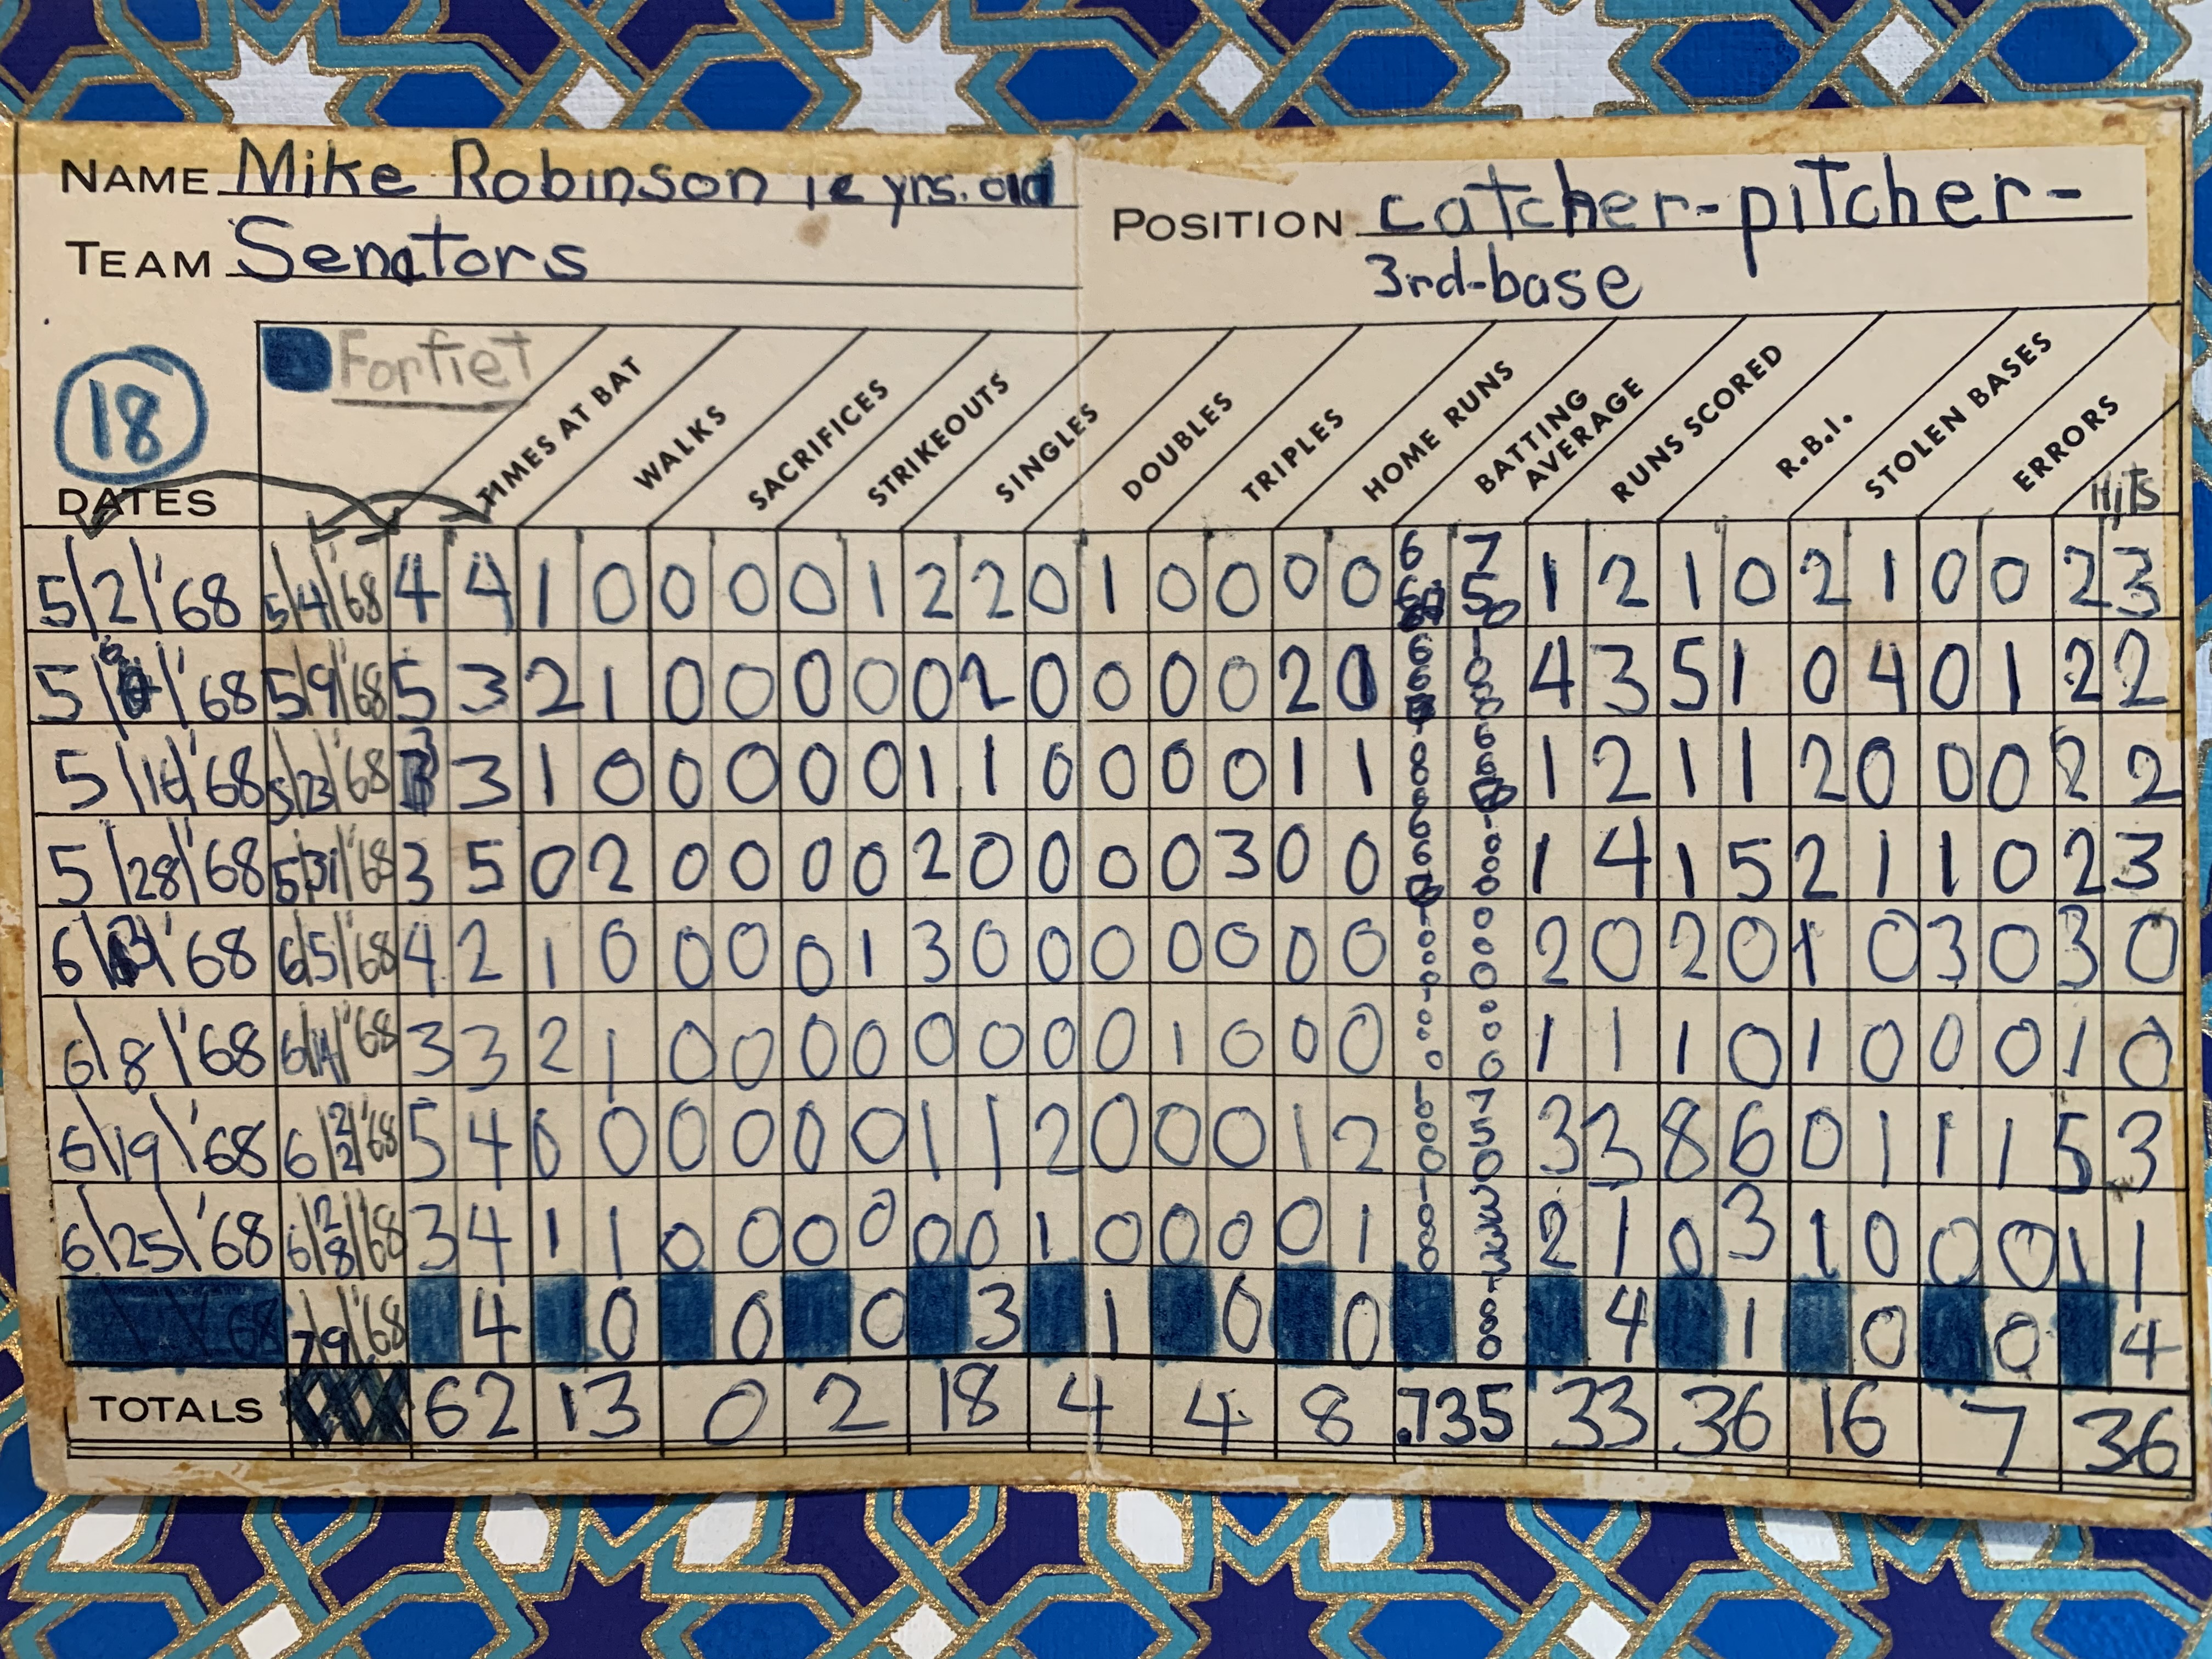 NAME Mike Robinson 12 yrs. old
TEAM Senators
POSITION catcher-pitcher-
3rd-base
18
Forfiet
DATES TIMES AT BAT WALKS SACRIFICES STRIKEOUTS SINGLES DOUBLES TRIPLES HOME RUNS BATTING AVERAGE RUNS SCORED R.B.I. STOLEN BASES ERRORS Hits
5/2/'68 5/4/'68 4 4 1 0 0 0 0 1 2 2 0 1 0 0 0 0 66 75 1 2 1 0 2 1 0 0 2 3
5/ /'68 5/9/'68 5 3 2 1 0 0 0 0 0 2 0 0 0 0 2 0 66 1 0 4 3 5 1 0 4 0 1 2 2
5/16/'68 5/23/'68 3 3 1 0 0 0 0 0 1 1 0 0 0 0 1 1 66 1 2 1 1 2 0 0 0 2 2
5/28/'68 5/31/'68 3 5 0 2 0 0 0 0 2 0 0 0 0 3 0 0 66 1000 1 4 1 5 2 1 1 0 2 3
6/ /'68 6/5/'68 4 2 1 0 0 0 0 1 3 0 0 0 0 0 0 0 1000 000 2 0 2 0 1 0 3 0 3 0
6/8/'68 6/14/'68 3 3 2 1 0 0 0 0 0 0 0 0 1 0 0 0 1000 000 1 1 1 0 1 0 0 0 1 0
6/19/'68 6/22/'68 5 4 0 0 0 0 0 0 1 1 2 0 0 0 1 2 1000 750 3 3 8 6 0 1 1 1 5 3
6/25/'68 6/28/'68 3 4 1 1 0 0 0 0 0 0 1 0 0 0 0 1 1000 333 2 1 0 3 1 0 0 0 1 1
68 7/9/'68 4 0 0 0 3 1 0 0 1000 4 1 0 0 4
TOTALS 62 13 0 2 18 4 4 8 .735 33 36 16 7 36